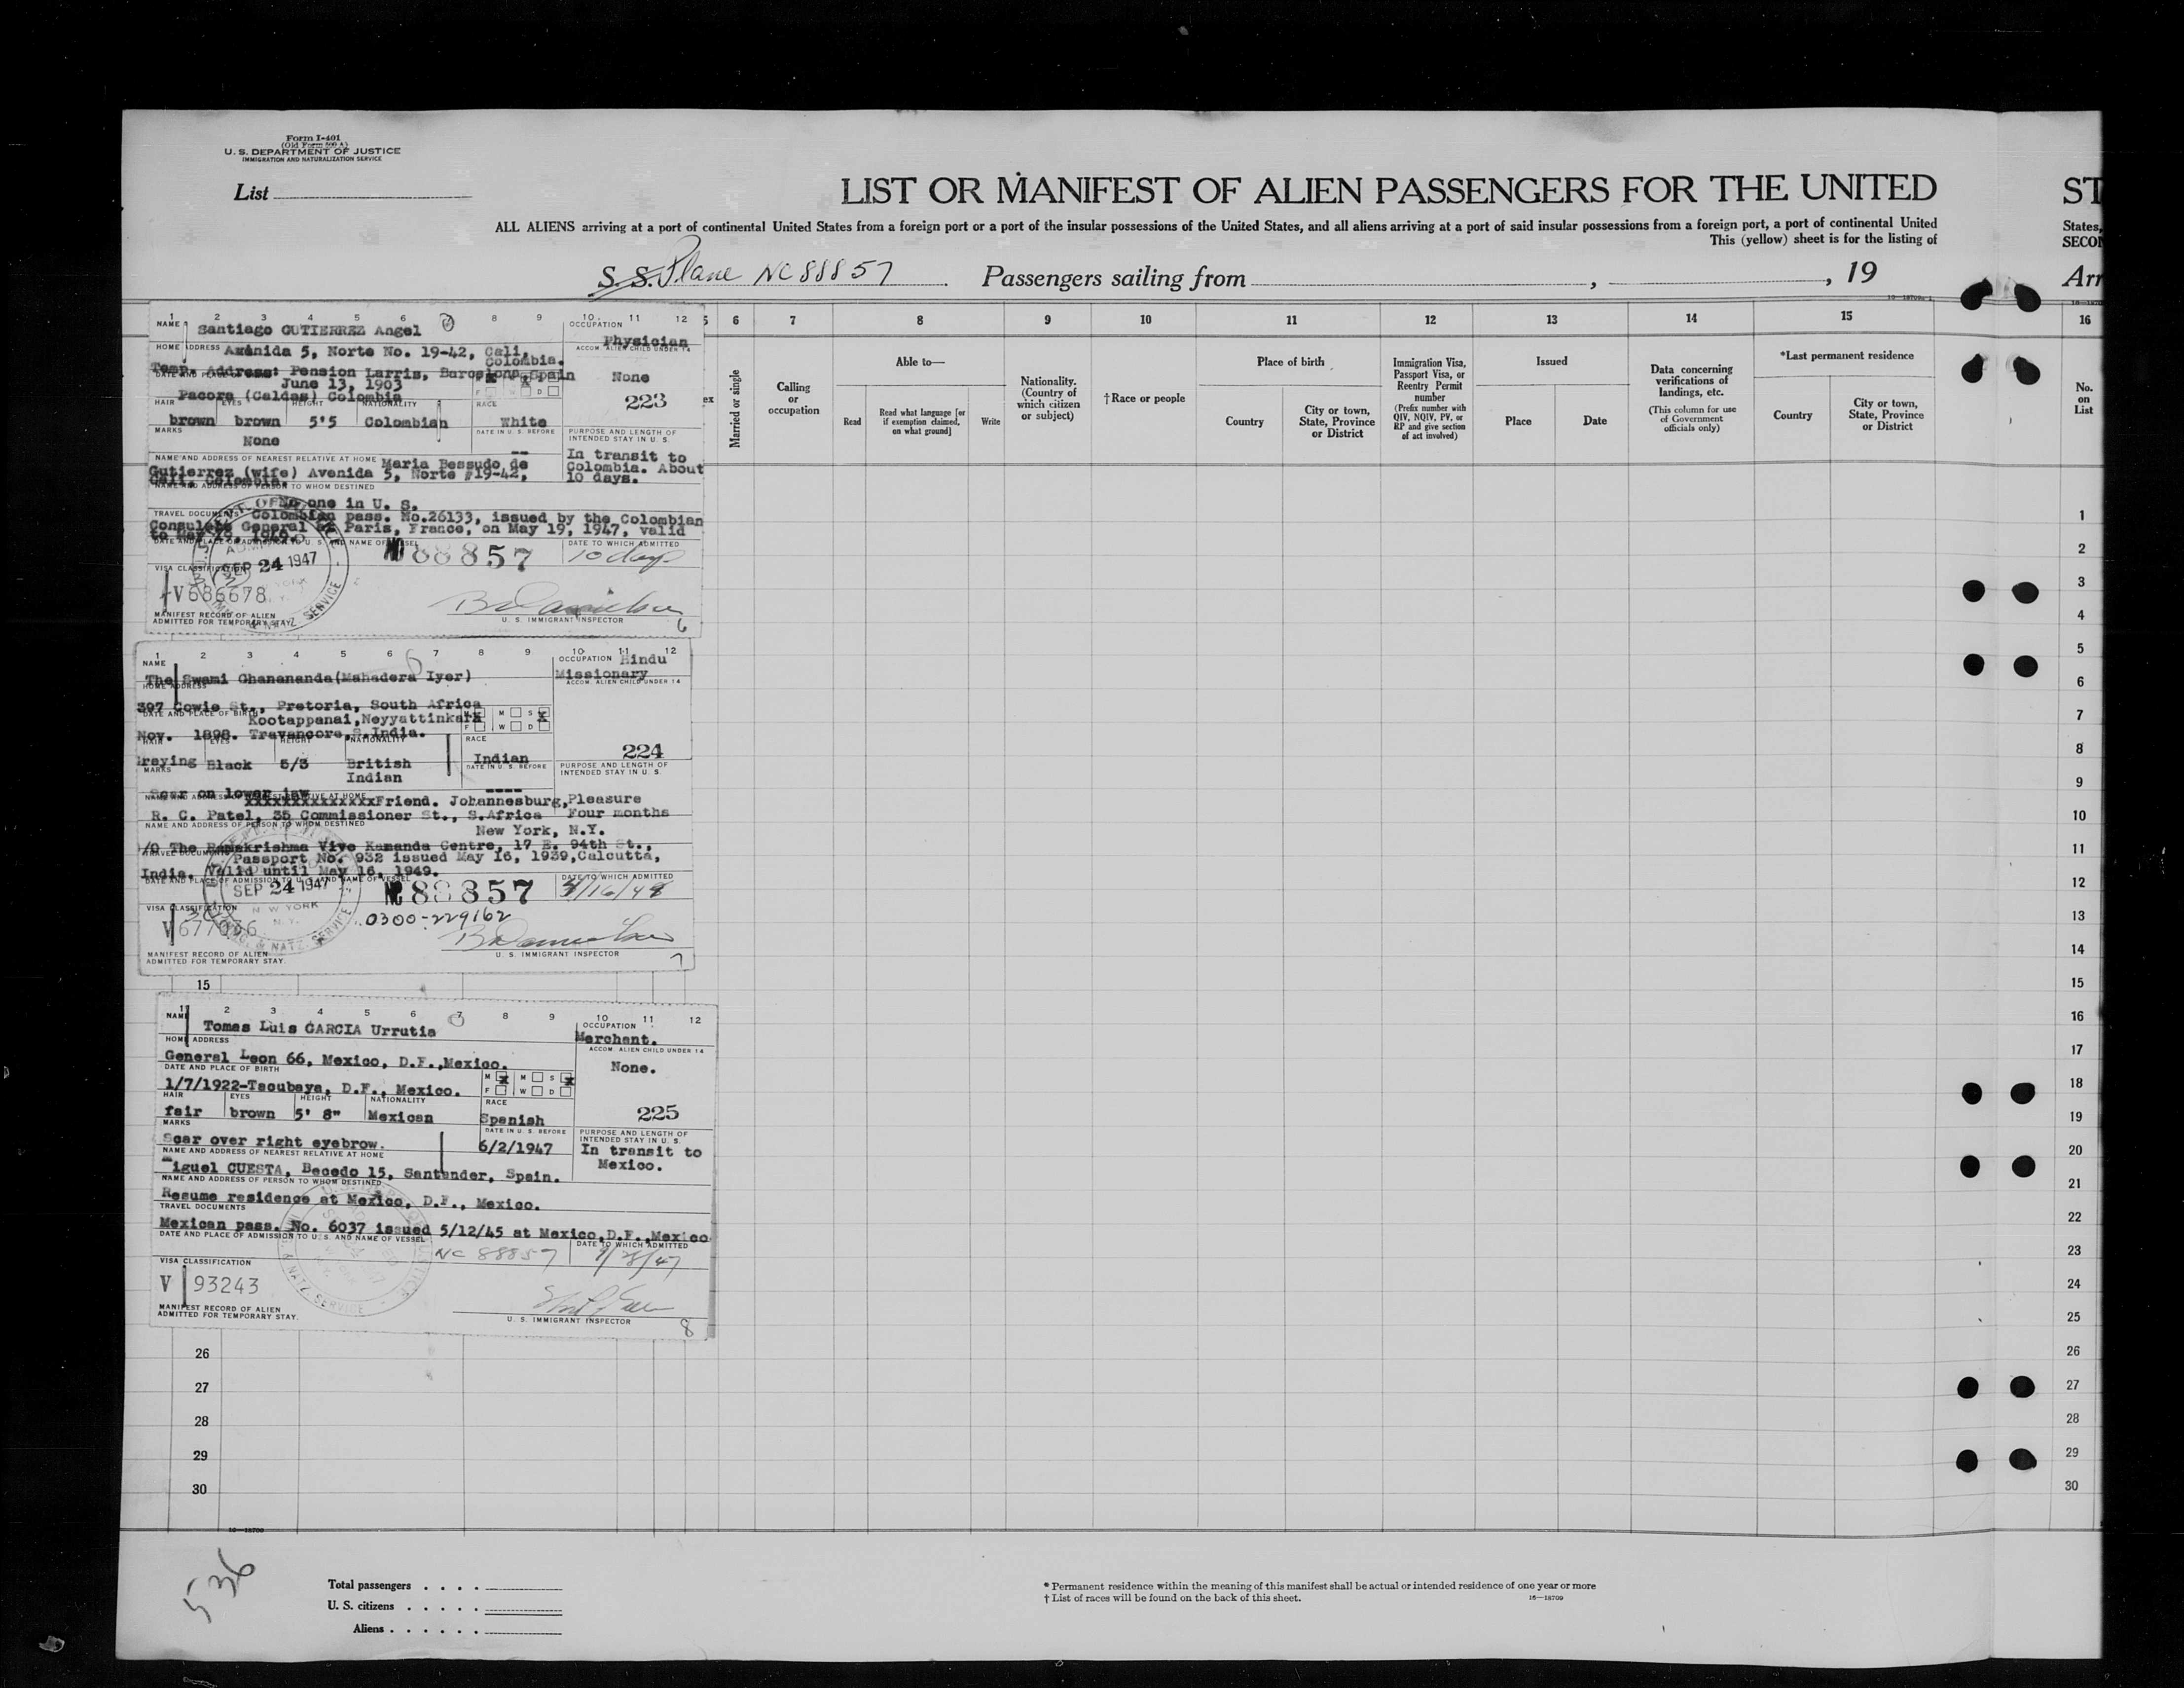 Form I-401
(Old Form 500 A)
U. S. DEPARTMENT OF JUSTICE
IMMIGRATION AND NATURALIZATION SERVICE
List
LIST OR MANIFEST OF ALIEN PASSENGERS FOR THE UNITED
ST
ALL ALIENS arriving at a port of continental United States from a foreign port or a port of the insular possessions of the United States, and all aliens arriving at a port of said insular possessions from a foreign port, a port of continental United
States,
This (yellow) sheet is for the listing of
SECON
S. S. Plane NC 88857 Passengers sailing from , , 19
Arr
16—18709-1
1 2 3 4 5 6 7 8 9 10 11 12
NAME Santiago GUTIERREZ Angel
OCCUPATION Physician
HOME ADDRESS Avenida 5, Norte No. 19-42, Cali, Colombia.
ACCOM. ALIEN CHILD UNDER 14
None
Temp. Address: Pension Larris, Barcelona, Spain
DATE AND PLACE OF BIRTH
June 13, 1903
Pacora (Caldas) Colombia
223
HAIR EYES HEIGHT NATIONALITY RACE
brown brown 5'5 Colombian White
MARKS
None
DATE IN U. S. BEFORE
--
PURPOSE AND LENGTH OF INTENDED STAY IN U. S.
In transit to
Colombia. About
10 days.
NAME AND ADDRESS OF NEAREST RELATIVE AT HOME Maria Bessudo de
Gutierrez (wife) Avenida 5, Norte #19-42,
Cali, Colombia.
NAME AND ADDRESS OF PERSON TO WHOM DESTINED
No one in U. S.
TRAVEL DOCUMENTS Colombian pass. No.26133, issued by the Colombian
Consulate General at Paris, France, on May 19, 1947, valid
to May 19, 1949.
DATE AND PLACE OF ADMISSION TO U. S. AND NAME OF VESSEL
SEP 24 1947
N 88857
DATE TO WHICH ADMITTED
10 days
VISA CLASSIFICATION
V 686678
MANIFEST RECORD OF ALIEN
ADMITTED FOR TEMPORARY STAY.
U. S. IMMIGRANT INSPECTOR
6
1 2 3 4 5 6 7 8 9 10 11 12
NAME
The Swami Ghanananda(Mahadera Iyer)
OCCUPATION Hindu
Missionary
HOME ADDRESS
ACCOM. ALIEN CHILD UNDER 14
397 Cowie St., Pretoria, South Africa
DATE AND PLACE OF BIRTH
Kootappanai,Neyyattinkara
Nov. 1898. Travancore,S.India.
224
HAIR EYES HEIGHT NATIONALITY RACE
Greying Black 5/3 British Indian
Indian
MARKS
Scar on lower jaw
DATE IN U. S. BEFORE
----
PURPOSE AND LENGTH OF INTENDED STAY IN U. S.
Pleasure
Four months
NAME AND ADDRESS OF NEAREST RELATIVE AT HOME
xxxxxxxxxxxxxxFriend. Johannesburg,
R. C. Patel, 35 Commissioner St., S.Africa
NAME AND ADDRESS OF PERSON TO WHOM DESTINED
New York, N.Y.
/O The Ramakrishma Vive Kamanda Centre, 17 E. 94th St.,
TRAVEL DOCUMENTS
Passport No. 932 issued May 16, 1939,Calcutta,
India. Valid until May 16, 1949.
DATE AND PLACE OF ADMISSION TO U. S. AND NAME OF VESSEL
SEP 24 1947
NEW YORK
N. Y.
88857
DATE TO WHICH ADMITTED
VISA CLASSIFICATION
V 677036
0300-229162
MANIFEST RECORD OF ALIEN
ADMITTED FOR TEMPORARY STAY.
U. S. IMMIGRANT INSPECTOR
7
15
1 2 3 4 5 6 7 8 9 10 11 12
NAME
Tomas Luis GARCIA Urrutia
OCCUPATION
Merchant.
HOME ADDRESS
ACCOM. ALIEN CHILD UNDER 14
General Leon 66, Mexico, D.F.,Mexico.
None.
DATE AND PLACE OF BIRTH
1/7/1922-Tacubaya, D.F., Mexico.
M M S
F W D
HAIR EYES HEIGHT NATIONALITY RACE
fair brown 5' 8" Mexican Spanish
225
MARKS
Scar over right eyebrow.
DATE IN U. S. BEFORE
6/2/1947
PURPOSE AND LENGTH OF INTENDED STAY IN U. S.
In transit to
Mexico.
NAME AND ADDRESS OF NEAREST RELATIVE AT HOME
Miguel CUESTA, Becedo 15, Santander, Spain.
NAME AND ADDRESS OF PERSON TO WHOM DESTINED
Resume residence at Mexico, D.F., Mexico.
TRAVEL DOCUMENTS
Mexican pass. No. 6037 issued 5/12/45 at Mexico,D.F.,Mexico
DATE AND PLACE OF ADMISSION TO U. S. AND NAME OF VESSEL
DATE TO WHICH ADMITTED
NC 88857
VISA CLASSIFICATION
V 93243
MANIFEST RECORD OF ALIEN
ADMITTED FOR TEMPORARY STAY.
U. S. IMMIGRANT INSPECTOR
8
26
27
28
29
30
5 6 7 8 9 10 11 12 13 14 15 16
ex
Married or single
Calling or occupation
Able to—
Read
Read what language [or if exemption claimed, on what ground]
Write
Nationality. (Country of which citizen or subject)
†Race or people
Place of birth
Country
City or town, State, Province or District
Immigration Visa, Passport Visa, or Reentry Permit number
(Prefix number with QIV, NQIV, PV, or RP and give section of act involved)
Issued
Place
Date
Data concerning verifications of landings, etc.
(This column for use of Government officials only)
*Last permanent residence
Country
City or town, State, Province or District
No. on List
1
2
3
4
5
6
7
8
9
10
11
12
13
14
15
16
17
18
19
20
21
22
23
24
25
26
27
28
29
30
16—18709
536
Total passengers . . . .
U. S. citizens . . . . .
Aliens . . . . . .
* Permanent residence within the meaning of this manifest shall be actual or intended residence of one year or more
† List of races will be found on the back of this sheet.
16—18709